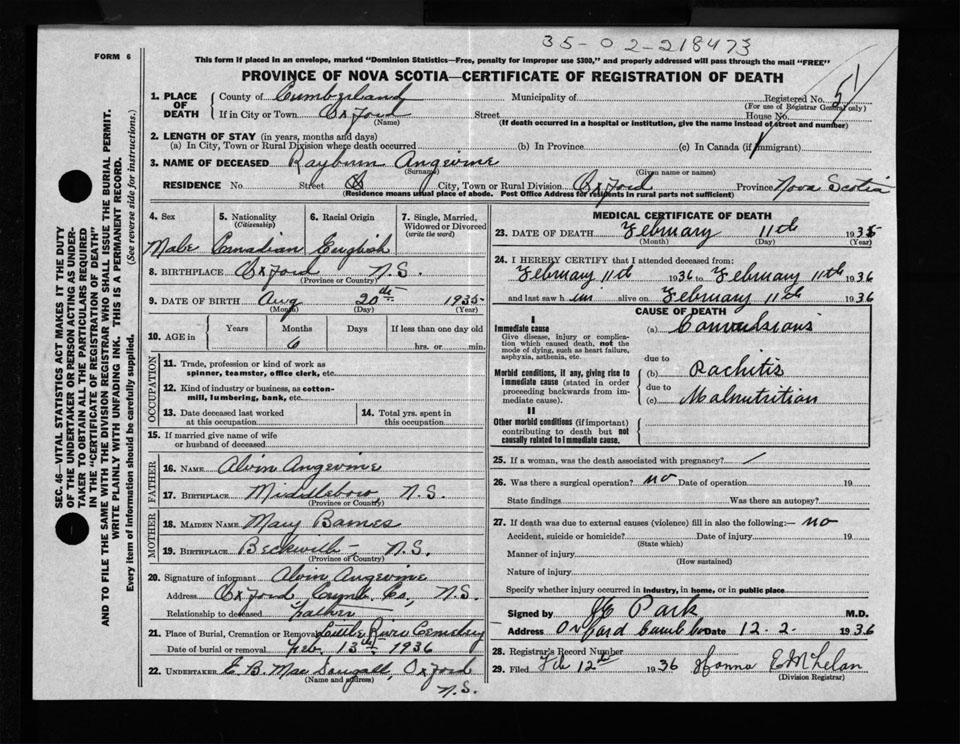 35-02-218473
FORM 6
This form if placed in an envelope, marked "Dominion Statistics—Free, penalty for improper use $300," and properly addressed will pass through the mail "FREE"
PROVINCE OF NOVA SCOTIA—CERTIFICATE OF REGISTRATION OF DEATH
SEC. 46—VITAL STATISTICS ACT MAKES IT THE DUTY
OF THE UNDERTAKER OR PERSON ACTING AS UNDER-
TAKER TO OBTAIN ALL THE PARTICULARS REQUIRED
IN THE "CERTIFICATE OF REGISTRATION OF DEATH"
AND TO FILE THE SAME WITH THE DIVISION REGISTRAR WHO SHALL ISSUE THE BURIAL PERMIT.
WRITE PLAINLY WITH UNFADING INK. THIS IS A PERMANENT RECORD.
Every item of information should be carefully supplied. (See reverse side for instructions.)
1. PLACE OF DEATH
County of Cumberland Municipality of Registered No. 51
(For use of Registrar General only)
If in City or Town Oxford Street House No.
(Name) (If death occurred in a hospital or institution, give the name instead of street and number)
2. LENGTH OF STAY (in years, months and days)
(a) In City, Town or Rural Division where death occurred (b) In Province (c) In Canada (if immigrant)
3. NAME OF DECEASED Rayburn Angevine
(Surname) (Given name or names)
RESIDENCE No. Street City, Town or Rural Division Oxford Province Nova Scotia
(Residence means usual place of abode. Post Office Address for residents in rural parts not sufficient)
4. Sex 5. Nationality (Citizenship) 6. Racial Origin 7. Single, Married, Widowed or Divorced (write the word)
Male Canadian English
8. BIRTHPLACE Oxford N.S.
(Province or Country)
9. DATE OF BIRTH Aug 20th 1935
(Month) (Day) (Year)
10. AGE in Years Months Days If less than one day old
6 hrs. or min.
OCCUPATION
11. Trade, profession or kind of work as
spinner, teamster, office clerk, etc.
12. Kind of industry or business, as cotton-
mill, lumbering, bank, etc.
13. Date deceased last worked at this occupation 14. Total yrs. spent in this occupation
15. If married give name of wife
or husband of deceased
FATHER
16. NAME Alvin Angevine
17. BIRTHPLACE Middleboro, N.S.
(Province or Country)
MOTHER
18. MAIDEN NAME Mary Barnes
19. BIRTHPLACE Beckwith N.S.
(Province or Country)
20. Signature of informant Alvin Angevine
Address Oxford, Cumb. Co, N.S.
Relationship to deceased Father
21. Place of Burial, Cremation or Removal Little River Cemetery
Date of burial or removal Feb. 13th 1936
22. UNDERTAKER E. B. Mac Dougall, Oxford
(Name and address) N.S.
MEDICAL CERTIFICATE OF DEATH
23. DATE OF DEATH February 11th 1935
(Month) (Day) (Year)
24. I HEREBY CERTIFY that I attended deceased from:
February 11th 1936 to February 11th 1936
and last saw h im alive on February 11th 1936
CAUSE OF DEATH
I
Immediate cause (a) Convulsions
Give disease, injury or complica-
tion which caused death, not the
mode of dying, such as heart failure,
asphyxia, asthenia, etc.
due to
Morbid conditions, if any, giving rise to (b) Rachitis
immediate cause (stated in order due to
proceeding backwards from im- (c) Malnutrition
mediate cause).
II
Other morbid conditions (if important)
contributing to death but not
causally related to immediate cause.
25. If a woman, was the death associated with pregnancy?
26. Was there a surgical operation? no Date of operation 19
State findings Was there an autopsy?
27. If death was due to external causes (violence) fill in also the following:— no
Accident, suicide or homicide? Date of injury 19
(State which)
Manner of injury
(How sustained)
Nature of injury
Specify whether injury occurred in industry, in home, or in public place
Signed by Park M.D.
Address Oxford Cumb Co Date 12.2. 1936
28. Registrar's Record Number
29. Filed Feb 12th 1936
(Division Registrar)